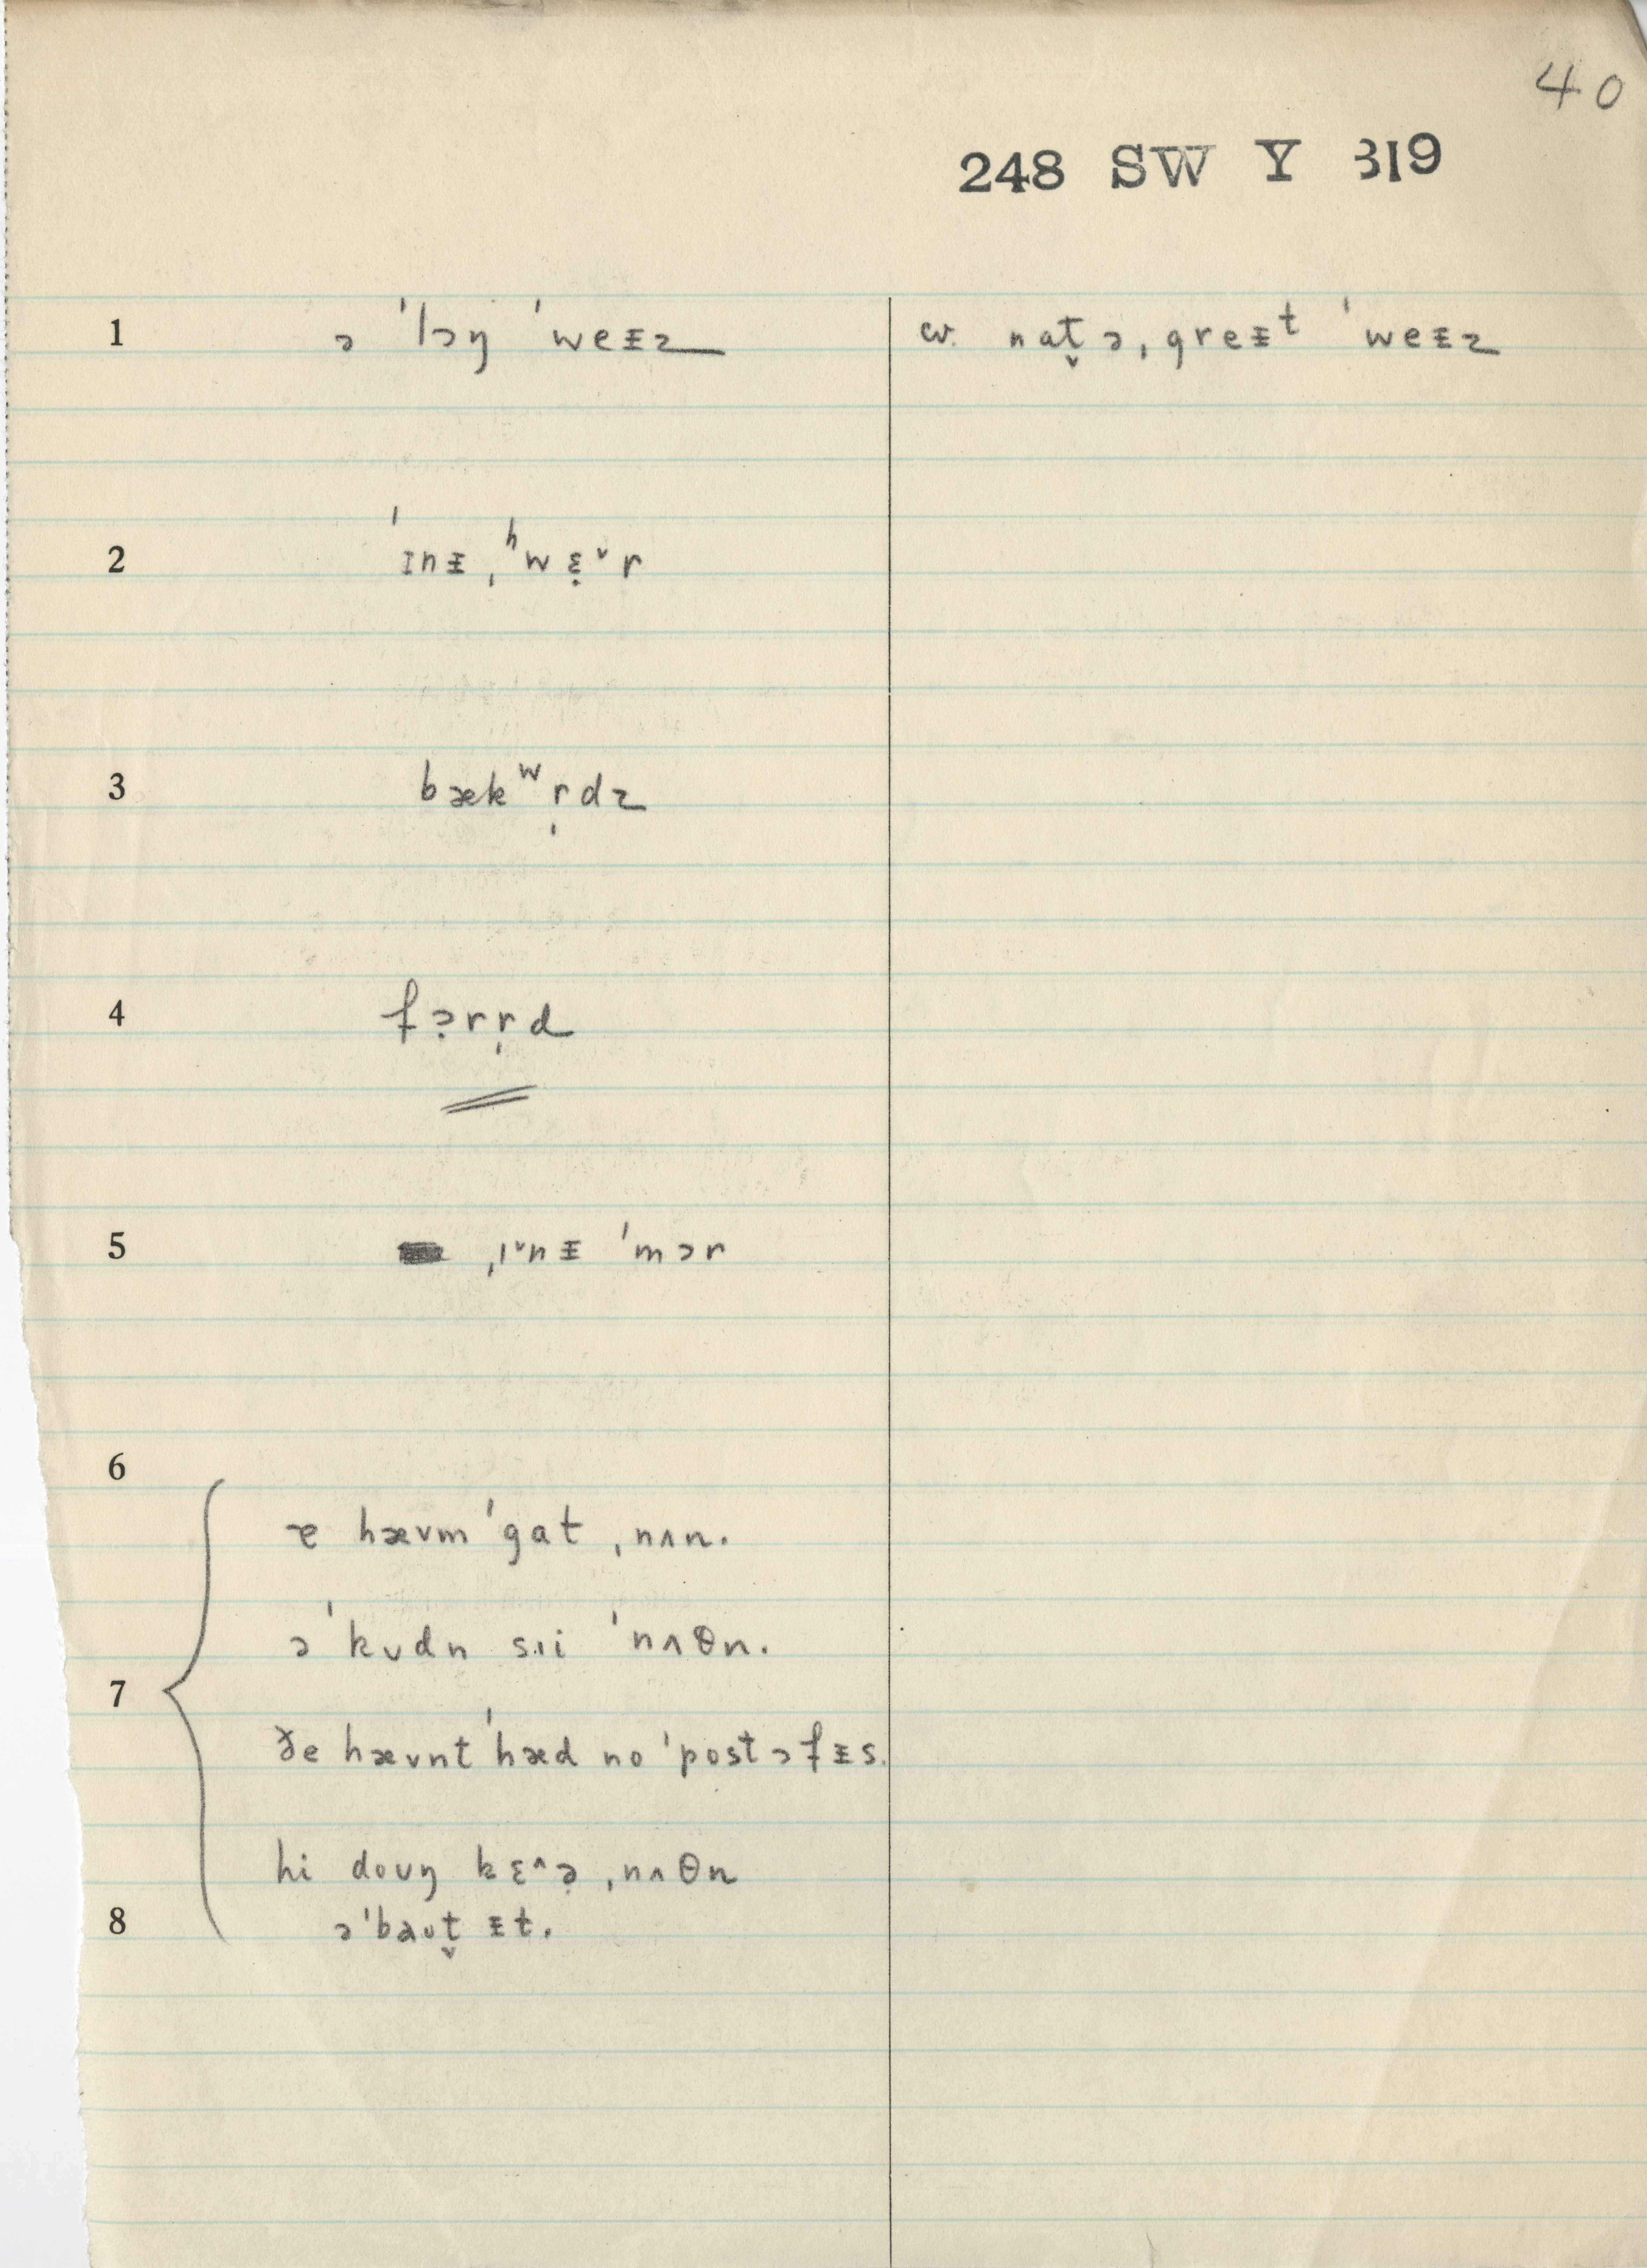 40
248 SW Y 319
1 ə ˈlɔŋ ˈweᵻz cv. nat̬ ə ˌgreᵻᵗ ˈweᵻz
2 ˈɪnᵻ ˌʰwɛ̣ˇr
3 bækʷr̩dz
4 fɔ̣rr̩d
5 ˌɪˇnᵻ ˈmɔr
6
ɐ hævm ˈgat ˌnʌn.
ə ˈkʊdn sɪi ˈnʌθn.
7
ðe hævnt ˈhæd no ˈpost ɔfᵻs.
hi doʊŋ kɛ^ə̣ ˌnʌθn
8 ə ˈbaʊt̬ ᵻt.